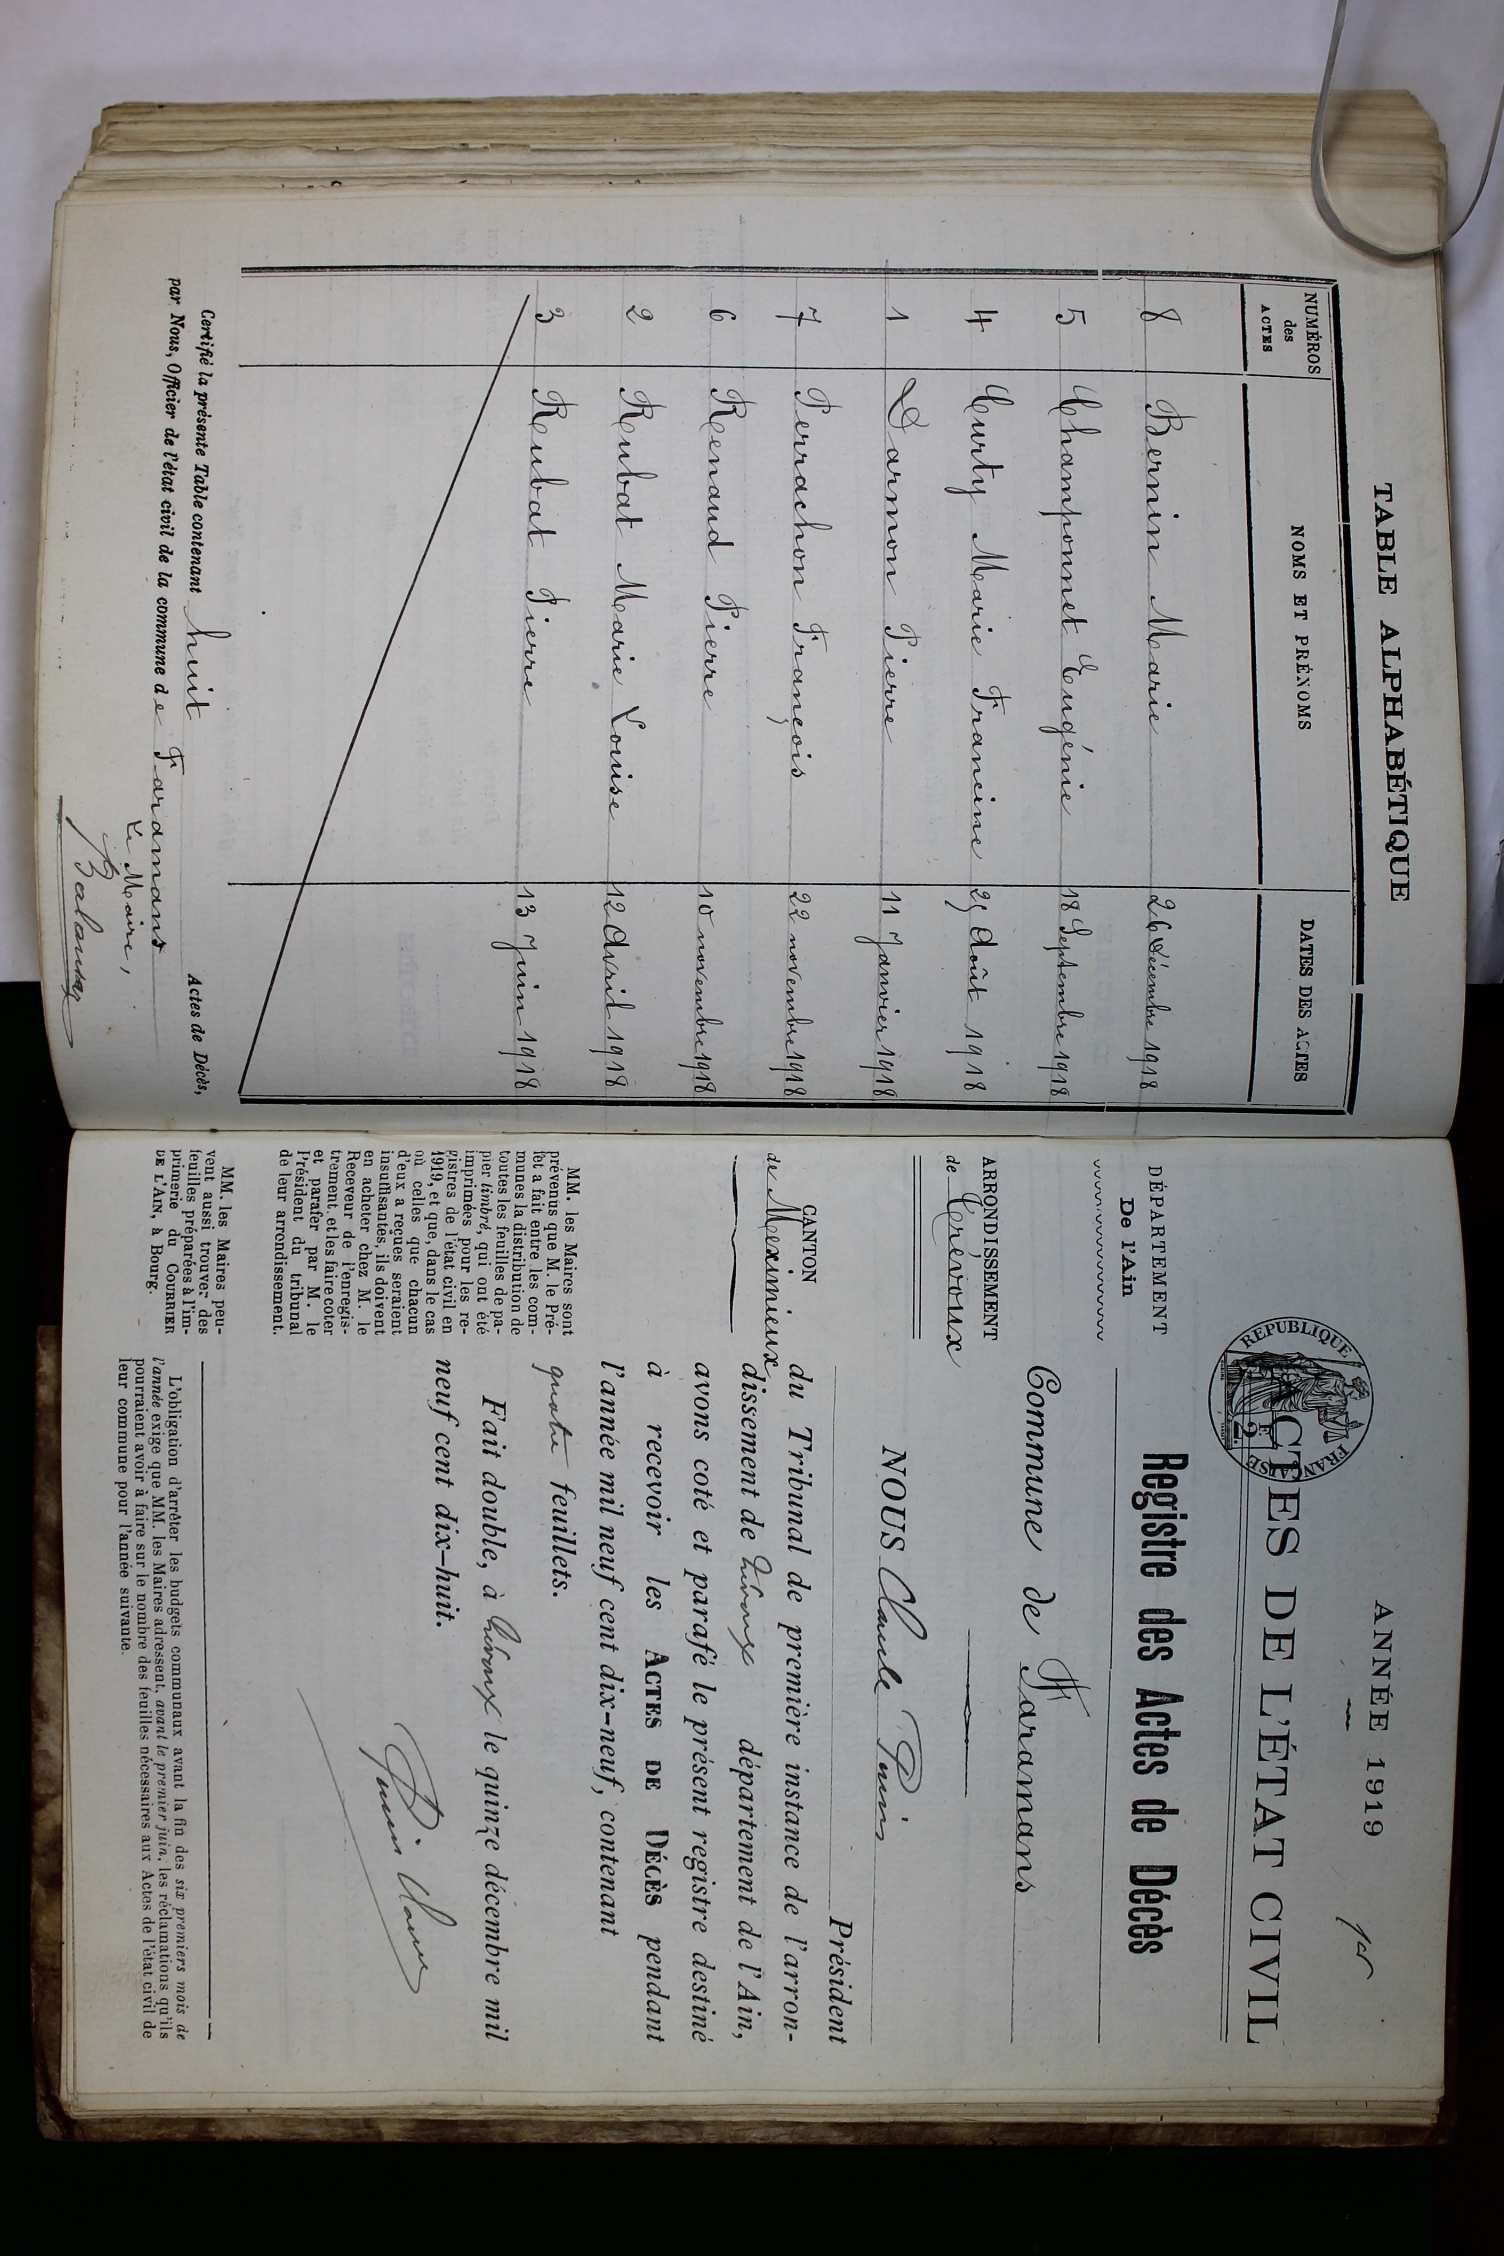 TABLE ALPHABÉTIQUE
NUMÉROS
des
ACTES
NOMS ET PRÉNOMS
DATES DES ACTES
8 Bernin Marie 26 Décembre 1918
5 Champonnet Eugénie 18 Septembre 1918
4 Curty Marie Francine 29 Août 1918
1 Darmon Pierre 11 Janvier 1918
7 Perrachon François 22 novembre 1918
6 Renaud Pierre 10 novembre 1918
2 Rubat Marie Louise 12 Avril 1918
3 Rubat Pierre 13 Juin 1918
Certifié la présente Table contenant huit Actes de Décès,
par Nous, Officier de l'état civil de la commune de Faramans
Le Maire,
ANNÉE 1919
1er
ACTES DE L'ÉTAT CIVIL
RÉPUBLIQUE FRANÇAISE
2
Registre des Actes de Décès
DÉPARTEMENT
De l'Ain
Commune de Faramans
ARRONDISSEMENT
de Trévoux
CANTON
de Meximieux
NOUS Claude
Président
du Tribunal de première instance de l'arron-
dissement de Trévoux département de l'Ain,
avons coté et parafé le présent registre destiné
à recevoir les ACTES DE DÉCÈS pendant
l'année mil neuf cent dix-neuf, contenant
quatre feuillets.
Fait double, à Trévoux le quinze décembre mil
neuf cent dix-huit.
MM. les Maires sont
prévenus que M. le Pré-
fet a fait entre les com-
munes la distribution de
toutes les feuilles de pa-
pier timbré, qui ont été
imprimées pour les re-
gistres de l'état civil en
1919, et que, dans le cas
où celles que chacun
d'eux a reçues seraient
insuffisantes, ils doivent
en acheter chez M. le
Receveur de l'enregis-
trement, et les faire coter
et parafer par M. le
Président du tribunal
de leur arrondissement.
MM. les Maires peu-
vent aussi trouver des
feuilles préparées à l'im-
primerie du COURRIER
DE L'AIN, à Bourg.
L'obligation d'arrêter les budgets communaux avant la fin des six premiers mois de
l'année exige que MM. les Maires adressent, avant le premier juin, les réclamations qu'ils
pourraient avoir à faire sur le nombre des feuilles nécessaires aux Actes de l'état civil de
leur commune pour l'année suivante.